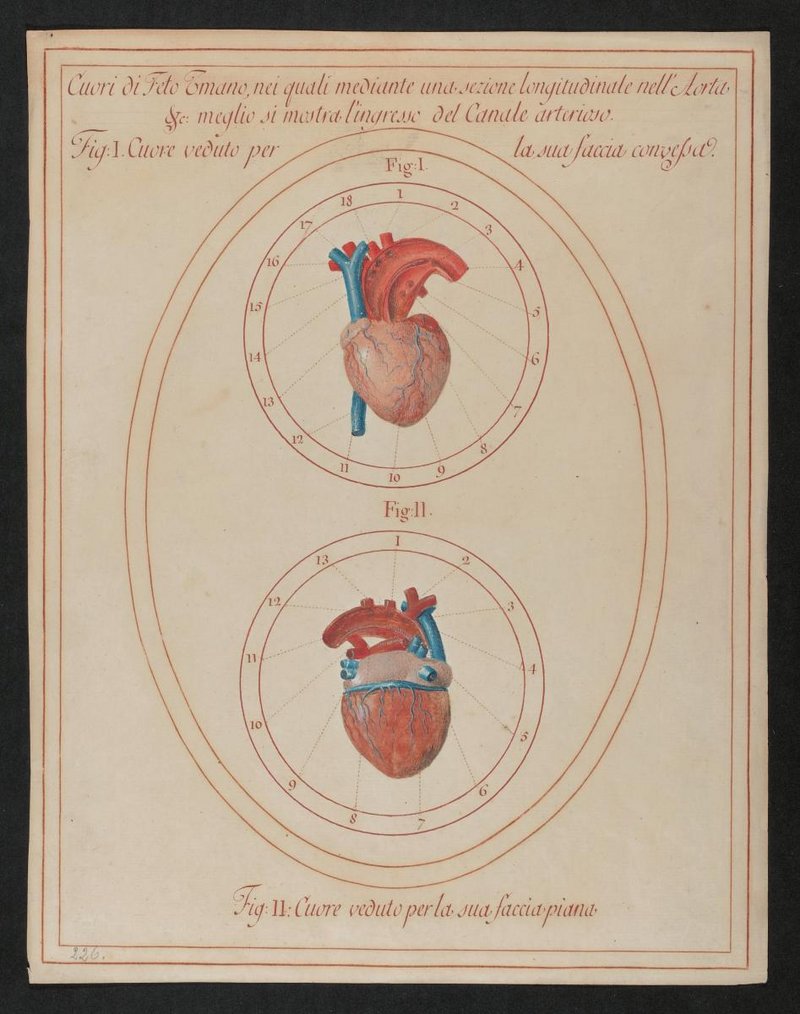 Cuori di Feto Umano, nei quali mediante una sezione longitudinale nell'Aorta
&c: meglio si mostra l'ingresso del Canale arterioso.
Fig: I. Cuore veduto per la sua faccia convessa.
Fig: I.
1
2
3
4
5
6
7
8
9
10
11
12
13
14
15
16
17
18
Fig: II.
1
2
3
4
5
6
7
8
9
10
11
12
13
Fig: II: Cuore veduto per la sua faccia piana
226.